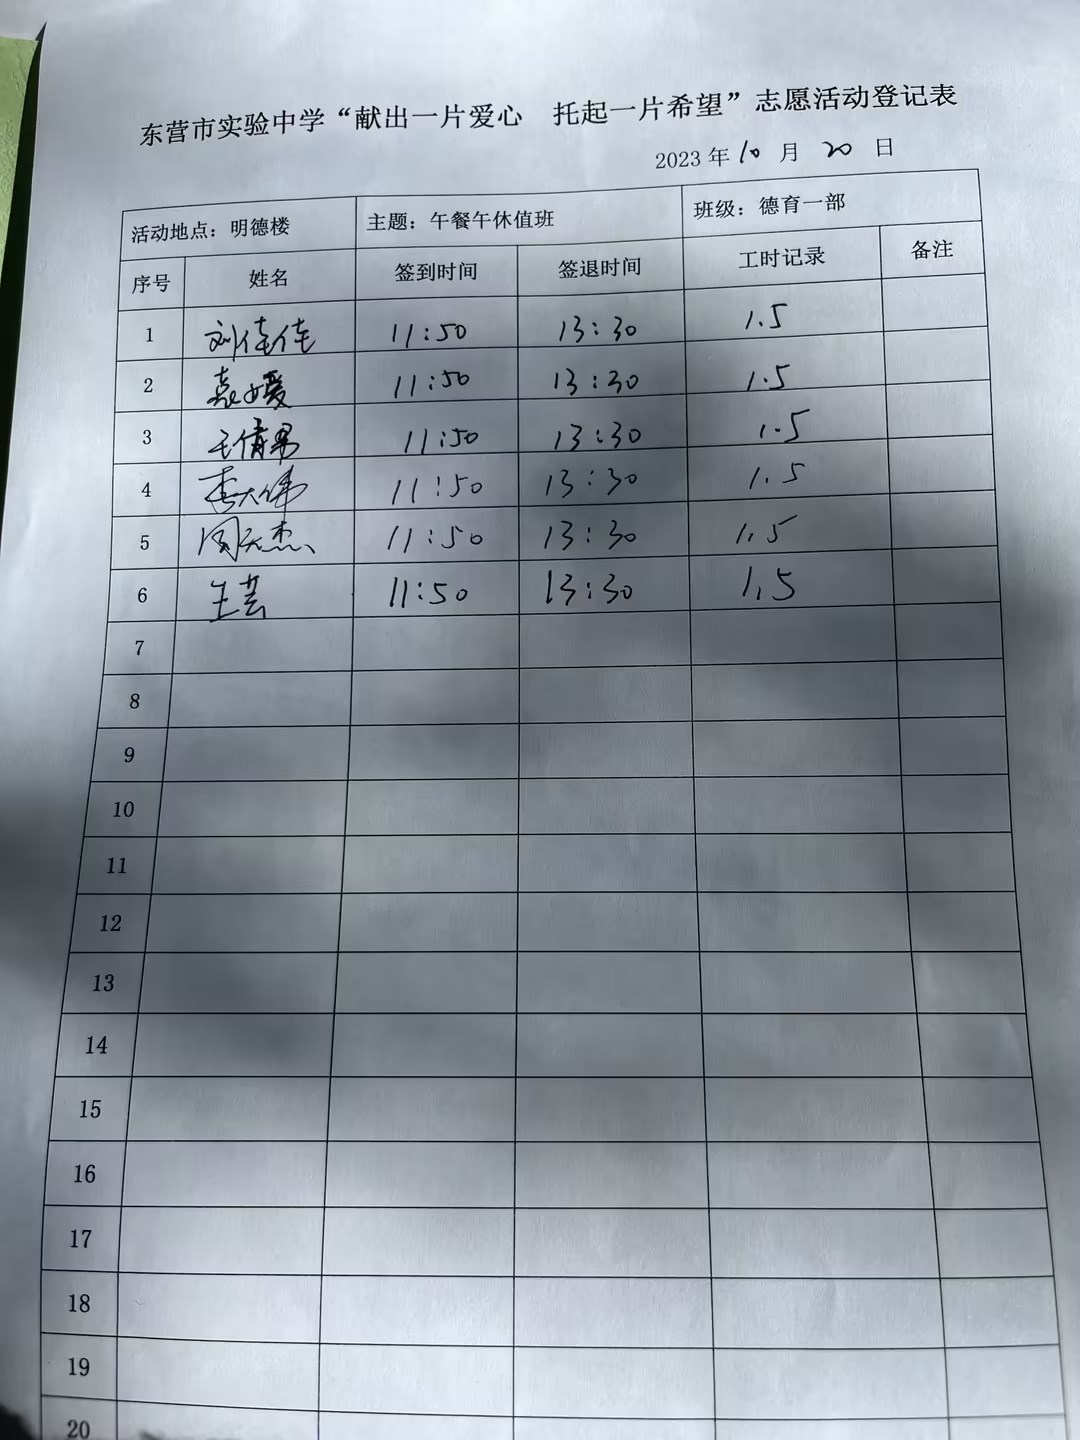 东营市实验中学“献出一片爱心 托起一片希望”志愿活动登记表
2023年10月20日
活动地点：明德楼 主题：午餐午休值班 班级：德育一部
序号 姓名 签到时间 签退时间 工时记录 备注
1 刘佳佳 11:50 13:30 1.5
2 袁媛 11:50 13:30 1.5
3 王倩男 11:50 13:30 1.5
4 李大伟 11:50 13:30 1.5
5 周天杰 11:50 13:30 1.5
6 王芸 11:50 13:30 1.5
7
8
9
10
11
12
13
14
15
16
17
18
19
20